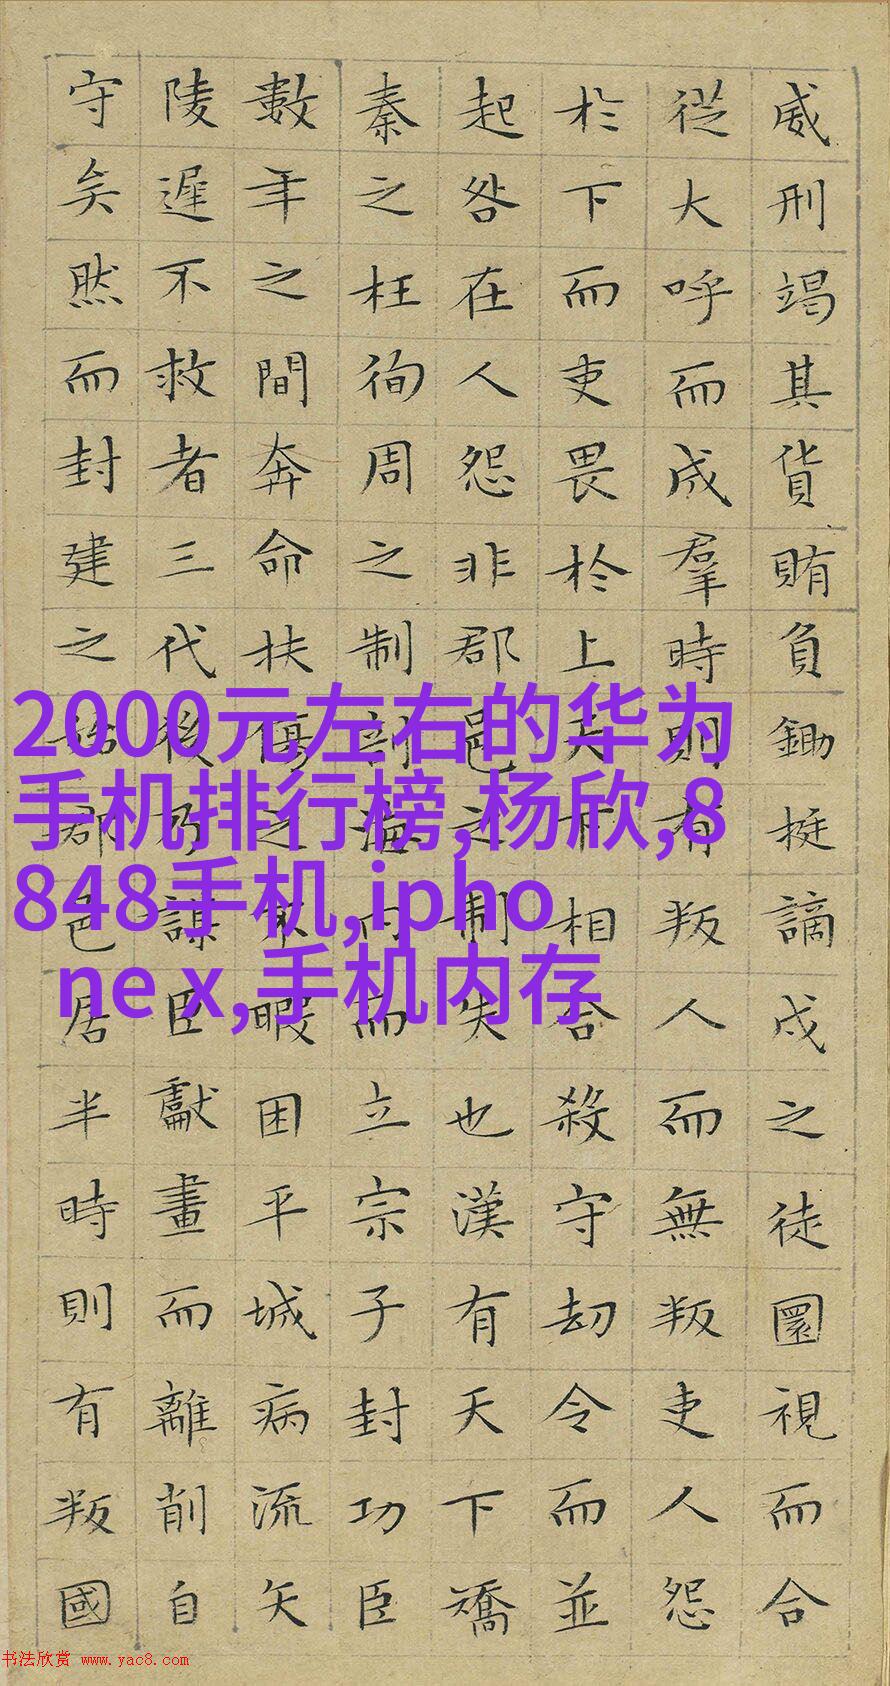 威刑竭其貨賄負鋤梃謫戍之徒圜視而合
從大呼而成羣時則有叛人而無叛吏人怨
於下而吏畏於上天下相合殺守劫令而並
起咎在人怨非郡邑之制失也漢有天下矯
秦之枉徇周之制剖海內而立宗子封功臣
數年之間奔命扶傷之不暇困平城病流矢
陵遲不救者三代後乃謀臣獻畫而離削自
守矣然而封建之始郡邑居半時則有叛國
2000元左右的华为
手机排行榜,杨欣,8
848手机,ipho
ne x,手机内存
书法欣赏 www.yac8.com